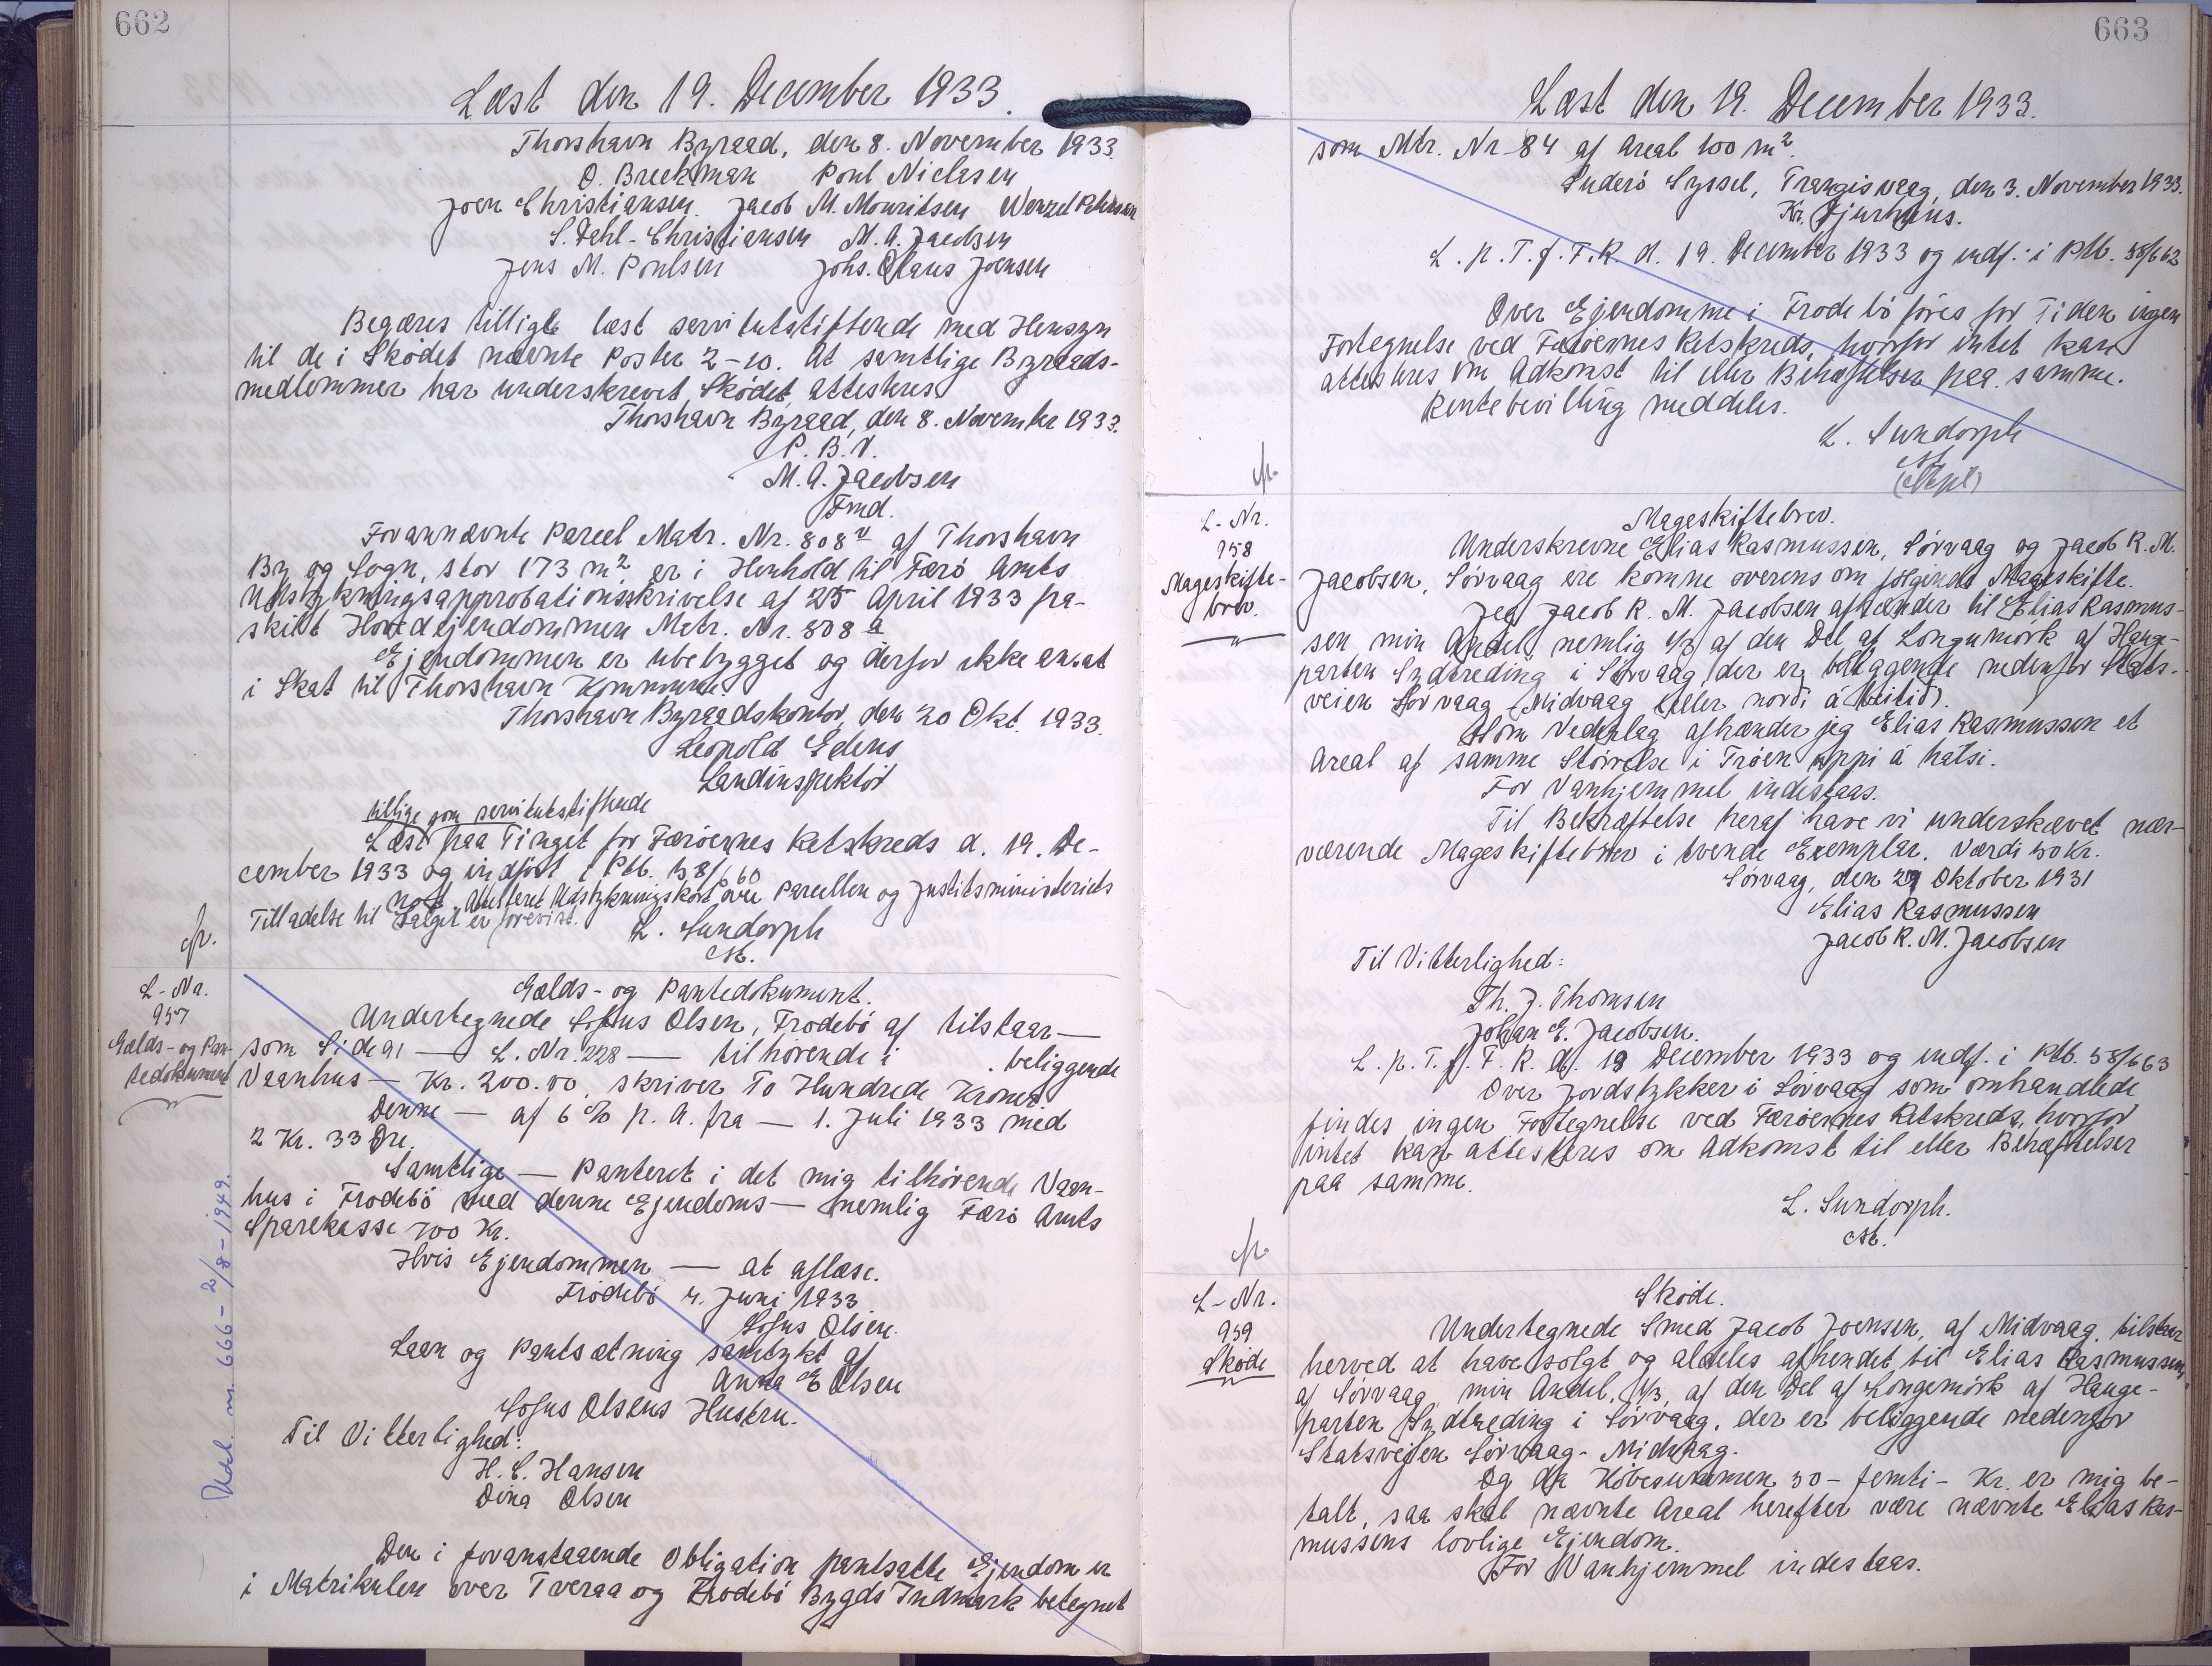 662
Læst den 19. December 1933.
Thorshavn Byraad, den 8. November 1933
O. Breckman Poul Niclasen
Joen Christiansen. Jacob M. Mouritsen Wenzel Petersen
S. Dahl-Christiansen M. A. Jacobsen
Jens M. Poulsen Johs. Olaus Joensen
Begæres tilligle læst servitutstiftende med Hensyn
til de i Skødet nævnte Poster 2-10. At samtlige Byraads-
medlemmer har underskrevet Skødet, attesteres
Thorshavn Byraad, den 8. November 1933.
P. B. V.
M. A. Jacobsen
Fmd.
Forannævnte Parcel Matr. Nr. 808 v af Thorshavn
By og Sogn, stor 173 m2 er i Henhold til Færø Amts
Udstykningsapprobationsskrivelse af 25 April 1933 fra-
skilt Hovedejendommen Matr. Nr. 808 a
Ejendommen er ubebygget og derfor ikke ansat
i Skat til Thorshavn Kommune.
Thorshavn Byraadskontor, den 20 Okt. 1933.
Leopold Edens
Landinspektør
tillige som servitutstiftende
Læst paa Tinget for Færøernes Retskreds d. 19. De-
cember 1933 og indført i Ptb. 58/660
Not. Attesteret Udstykningskort over Parcellen og Justitsministeriets
Tilladelse til Salget er forevist.
L. Sundorph
fr.
L-Nr.
957
Gælds- og Pan-
tedokument
Gælds- og Pantedokument.
Undertegnede Sofus Olsen, Frodebö af tilstaar —
som Side 91 — L. Nr. 228 — tilhørende i . beliggende
Vaanhus — Kr. 200.00, skriver To Hundrede Kroner
Denne — af 6 % p. A. fra — 1. Juli 1933 med
2 Kr. 33 Øre.
Samtlige — Panteret i det mig tilhørende Vaan-
hus i Frodebö med denne Ejendoms — nemlig Færö Amts
Sparekasse 700 Kr.
Hvis Ejendommen — at aflæse.
Frodebö 4. Juni 1933.
Sofus Olsen.
Laan og Pantsætning samtykt af
Anna E Olsen
Sofus Olsens Hustru.
Til Vitterlighed:
H. C. Hansen
Dina Olsen
Den i foranstaaende Obligation pantsatte Ejendom er
i Matrikulen over Tveraa og Frodebö Bygds Indmark betegnet
Udsl. 666 - 2/8-1949.
663
Læst den 19. December 1933.
som Mtr. Nr 84 af Areal 100 m2.
Suderö Syssel, Trangisvaag, den 3. November 1933.
Kr. Djurhuus.
L. p. T. f. F. R. d. 19. December 1933 og indf. i Ptb. 58/662
Over Ejendomme i Frodebö føres for Tiden ingen
Fortegnelse ved Færøernes Retskreds, hvorfor intet kan
attesteres om Adkomst til eller Behæftelser paa samme.
Rentebevilling meddeles.
L. Sundorph
fr.
L-Nr.
958
Mageskifte-
brev.
Mageskiftebrev.
Underskrevne Elias Rasmussen, Sørvaag og Jacob R. M.
Jacobsen, Sørvaag ere komne overens om følgende Mageskifte.
Jeg Jacob R. M. Jacobsen afhænder til Elias Rasmus-
sen min Andel, nemlig 1/3 af den Del af Longumörk af Hauge-
parten Sydtreding i Sørvaag, der er beliggende nedenfor Stats-
veien Sørvaag - Midvaag (eller norði á Heitið).
Som Vederlag afhænder jeg Elias Rasmussen et
Areal af samme Størrelse i Trøen uppi á hátsi.
For Vanhjemmel indestaas.
Til Bekræftelse heraf have vi underskævet nær-
værende Mageskiftebrev i tvende Exemplar. Værdi 50 Kr.
Sørvaag, den 29 Oktober 1931
Elias Rasmussen
Jacob R. M. Jacobsen
Til Vitterlighed:
Th. J. Thomsen
Johan E. Jacobsen.
L. p. T. f. F. R. d. 19 December 1933 og indf. i Ptb. 58/663
Over Jordstykker i Sørvaag som omhandlede
findes ingen Fortegnelse ved Færøernes Retskreds, hvorfor
intet kan attesteres om Adkomst til eller Behæftelser
paa samme.
L. Sundorph.
fr.
L-Nr.
959
Skøde
Skøde.
Undertegnede Smed Jacob Joensen, af Midvaag, tilstaar
herved at have solgt og aldeles afhendet til Elias Rasmussen,
af Sørvaag, min Andel, 1/3, af den Del af Longemörk af Hauge-
parten Sydtreding i Sørvaag, der er beliggende nedenfor
Statsvejen Sørvaag - Midvaag.
Og da Købesummen 50 - femti - Kr. er mig be-
talt, saa skal nævnte Areal herefter være nævnte Elias Ras-
mussens lovlige Ejendom.
For Vanhjemmel indestaas.